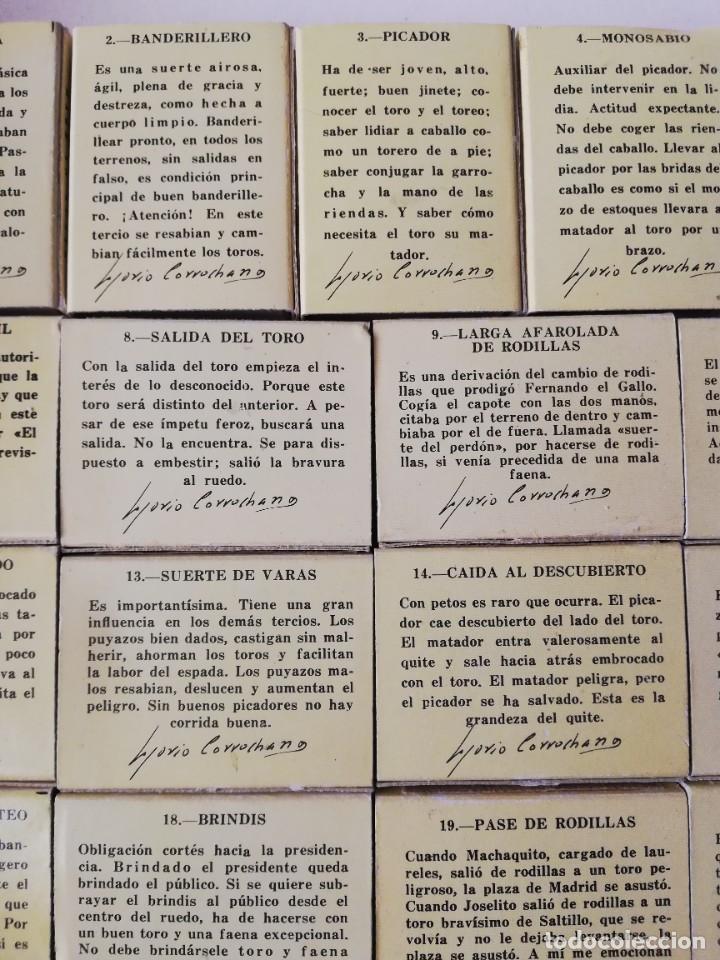 A
ásica
a los
da y
aban
Pas-
a la
atu-
con
alo-
2.—BANDERILLERO
Es una suerte airosa,
ágil, plena de gracia y
destreza, como hecha a
cuerpo limpio. Banderi-
llear pronto, en todos los
terrenos, sin salidas en
falso, es condición prin-
cipal de buen banderille-
ro. ¡Atención! En este
tercio se resabian y cam-
bian fácilmente los toros.
Gregorio Corrochano
3.—PICADOR
Ha de ser joven, alto,
fuerte; buen jinete; co-
nocer el toro y el toreo;
saber lidiar a caballo co-
mo un torero de a pie;
saber conjugar la garro-
cha y la mano de las
riendas. Y saber cómo
necesita el toro su ma-
tador.
Gregorio Corrochano
4.—MONOSABIO
Auxiliar del picador. No
debe intervenir en la li-
dia. Actitud expectante.
No debe coger las rien-
das del caballo. Llevar al
picador por las bridas del
caballo es como si el mo-
zo de estoques llevara a
matador al toro por u
brazo.
Gregorio Corrochano
IL
utori-
que la
y que
n este
r «El
revis-
8.—SALIDA DEL TORO
Con la salida del toro empieza el in-
terés de lo desconocido. Porque este
toro será distinto del anterior. A pe-
sar de ese ímpetu feroz, buscará una
salida. No la encuentra. Se para dis-
puesto a embestir; salió la bravura
al ruedo.
Gregorio Corrochano
9.—LARGA AFAROLADA
DE RODILLAS
Es una derivación del cambio de rodi-
llas que prodigó Fernando el Gallo.
Cogía el capote con las dos manos,
citaba por el terreno de dentro y cam-
biaba por el de fuera. Llamada «suer-
te del perdón», por hacerse de rodi-
llas, si venía precedida de una mala
faena.
Gregorio Corrochano
El
in
A
da
DO
ocado
us ta-
por
poco
va al
ita el
13.—SUERTE DE VARAS
Es importantísima. Tiene una gran
influencia en los demás tercios. Los
puyazos bien dados, castigan sin mal-
herir, ahorman los toros y facilitan
la labor del espada. Los puyazos ma-
los resabian, deslucen y aumentan el
peligro. Sin buenos picadores no hay
corrida buena.
Gregorio Corrochano
14.—CAIDA AL DESCUBIERTO
Con petos es raro que ocurra. El pica-
dor cae descubierto del lado del toro.
El matador entra valerosamente al
quite y sale hacia atrás embrocado
con el toro. El matador peligra, pero
el picador se ha salvado. Esta es la
grandeza del quite.
Gregorio Corrochano
TEO
ban-
gero
te el
que
Por
sí es
18.—BRINDIS
Obligación cortés hacia la presiden-
cia. Brindado el presidente queda
brindado el público. Si se quiere sub-
rayar el brindis al público desde el
centro del ruedo, ha de hacerse con
un buen toro y una faena excepcional.
No debe brindársele toro y faena
19.—PASE DE RODILLAS
Cuando Machaquito, cargado de lau-
reles, salió de rodillas a un toro pe-
ligroso, la plaza de Madrid se asustó.
Cuando Joselito salió de rodillas a un
toro bravísimo de Saltillo, que se re-
volvía y no le dejaba levantarse, la
plaza se asustó. A mí me emocionan
todocoleccion.net